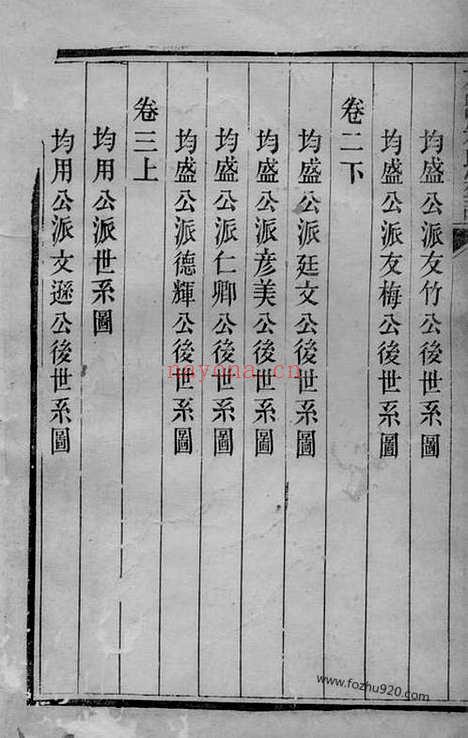 均盛公派友竹公後世系圖
均盛公派友梅公後世系圖
卷二下
均盛公派廷文公後世系圖
均盛公派彦美公後世系圖
均盛公派仁卿公後世系圖
均盛公派德輝公後世系圖
卷三上
均用公派世系圖
均用公派文遜公後世系圖
nayona.cn
www.fozhu920.com